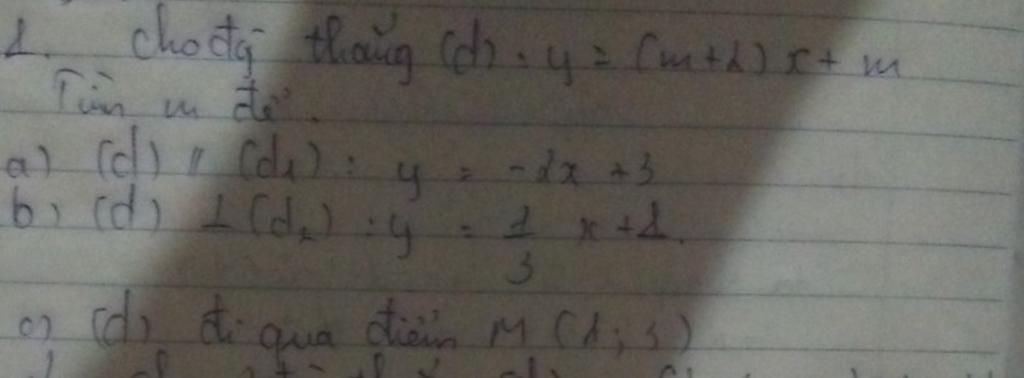 1. Cho đg thẳng (d): y = (m+1)x + m
Tìm m để:
a) (d) // (d₁): y = -2x + 3
b) (d) ⊥ (d₂): y = 1/3 x + 1.
c) (d) đi qua điểm M (1; 3)